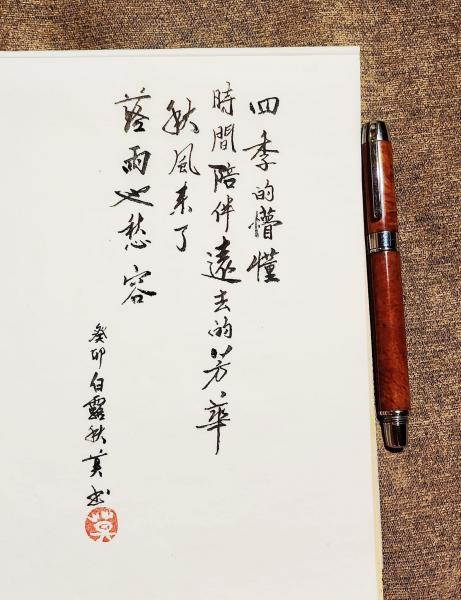 四季的懵懂
時間陪伴遠去的芳華
秋風来了
落雨也愁容
癸卯白露秋英书
英